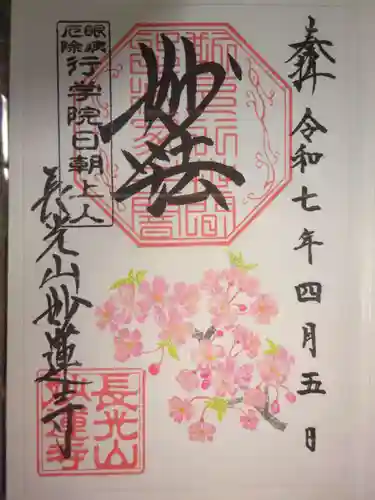 奉拝
令和七年四月五日
妙法
眼病
厄除
行学院日朝上人
長光山妙蓮寺
長光山
妙蓮寺